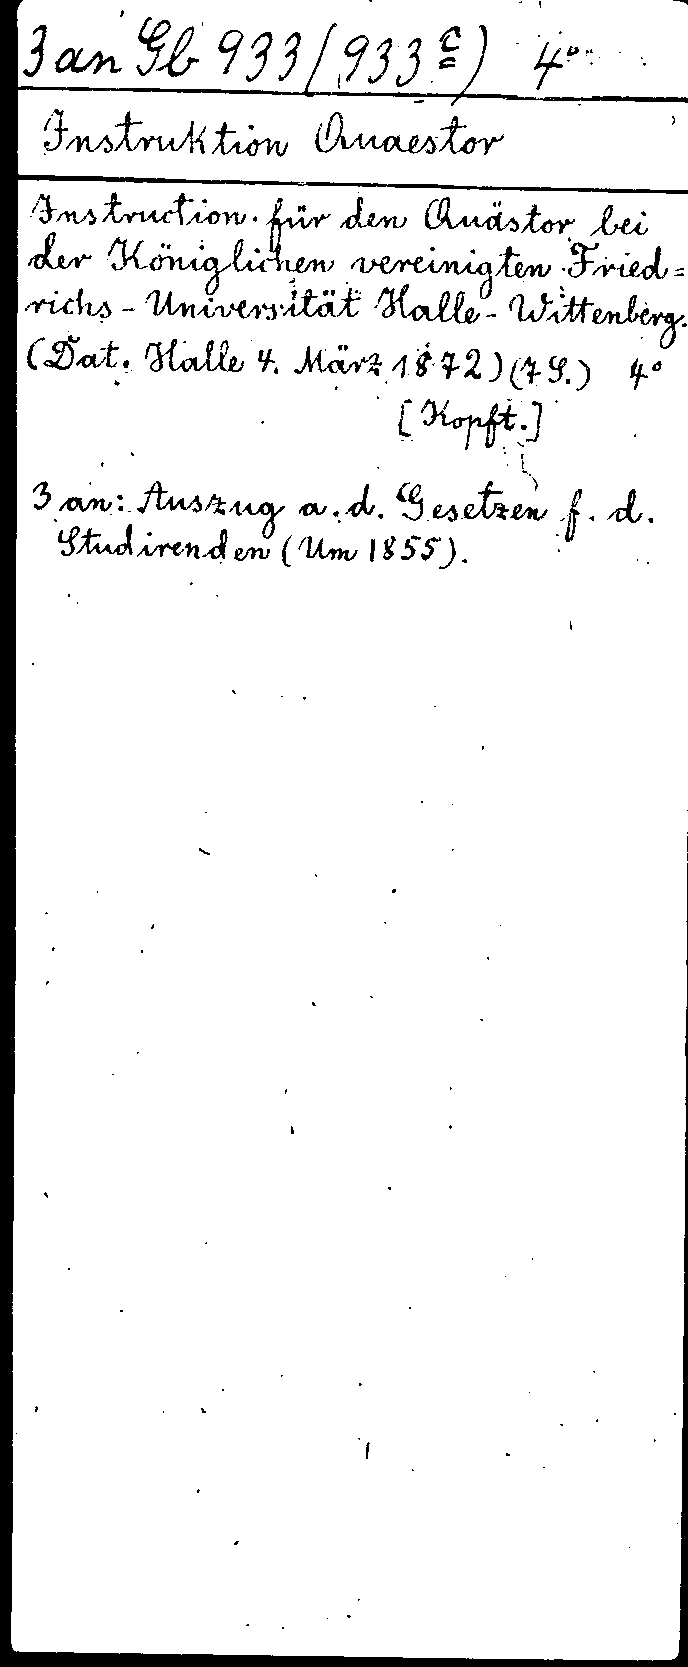 3 an Gb 933 (933 c) 4°
Instruktion Quaestor
Instruction für den Quästor bei
der Königlichen vereinigten Fried=
richs-Universität Halle-Wittenberg.
(Dat. Halle 4. März 1872) (7 S.) 4°
[Kopft.]
3 an: Auszug a. d. Gesetzen f. d.
Studirenden (Um 1855).